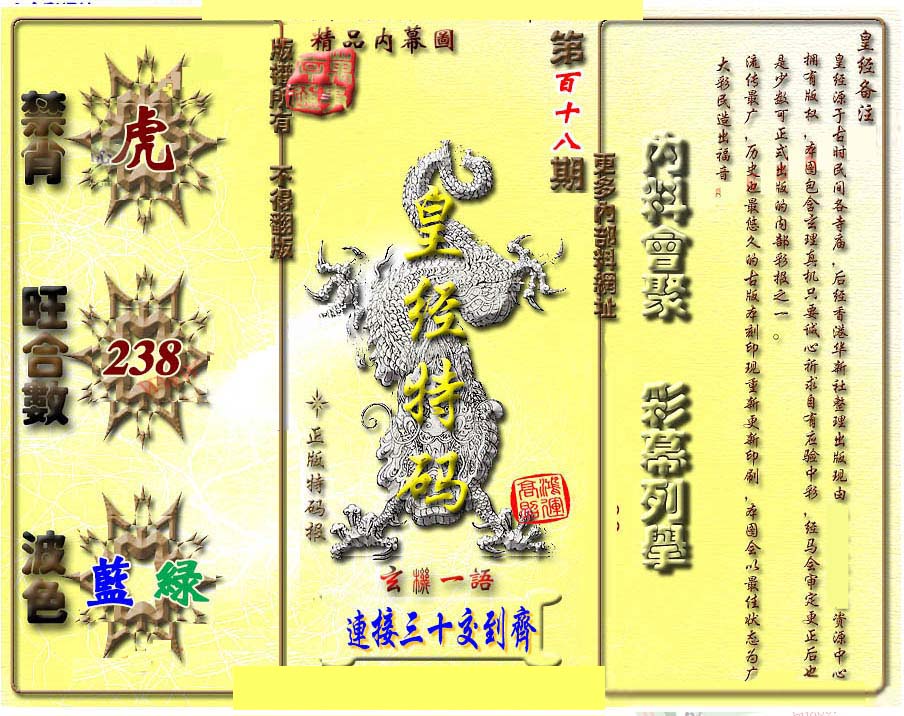 禁肖
虎
旺合數
238
波色
藍 綠
版權所有 不得翻版
精品内幕圖
第百十八期
皇经特码
正版特码报
鴻運高照
玄機一語
連接三十交到齊
更多內部料網址
內料會聚
彩幕列擧
皇经备注
皇经源于古时民间各寺庙，后经香港华新社整理出版现由 资源中心
拥有版权，本图包含玄理真机只要诚心祈求自有应验中彩，经马会审定更正后也
是少数可正式出版的内部彩报之一。
流传最广，历史也最悠久的古版本刻印现重新更新印刷，本图会以最佳状态为广
大彩民造出福音